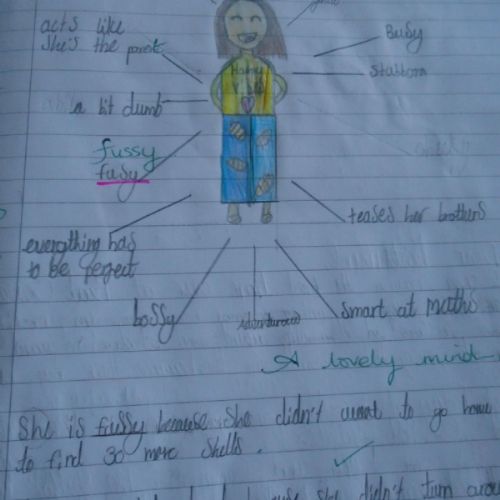 acts like
she's the parent
Busy
stubborn
a bit dumb
fussy
fusy
teases her brothers
everything has
to be perfect
bossy
smart at maths
A lovely mind
She is fussy because she didn't want to go home
to find 30 more shells.
she didn't turn